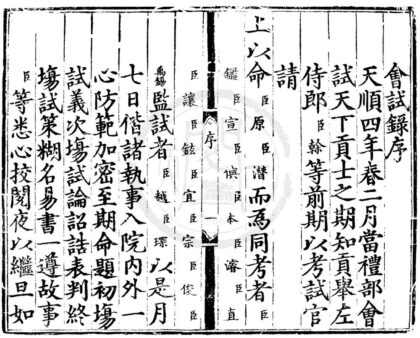 會試錄序
天順四年春二月當禮部會
試天下貢士之期知貢舉左
侍郎臣翰等前期以考試官
請
上以命臣原臣潛而為同考者臣
鑑臣宣臣臣本臣濬臣直
序 一
臣讓臣鉉臣宜臣宗臣俊臣
禹錫監試者臣越臣璨以是月
七日偕諸執事入院內外一
心防範加密至期命題初場
試義次場試論詔誥表判終
場試策糊名易書一遵故事
臣等悉心挍閱夜以繼旦如